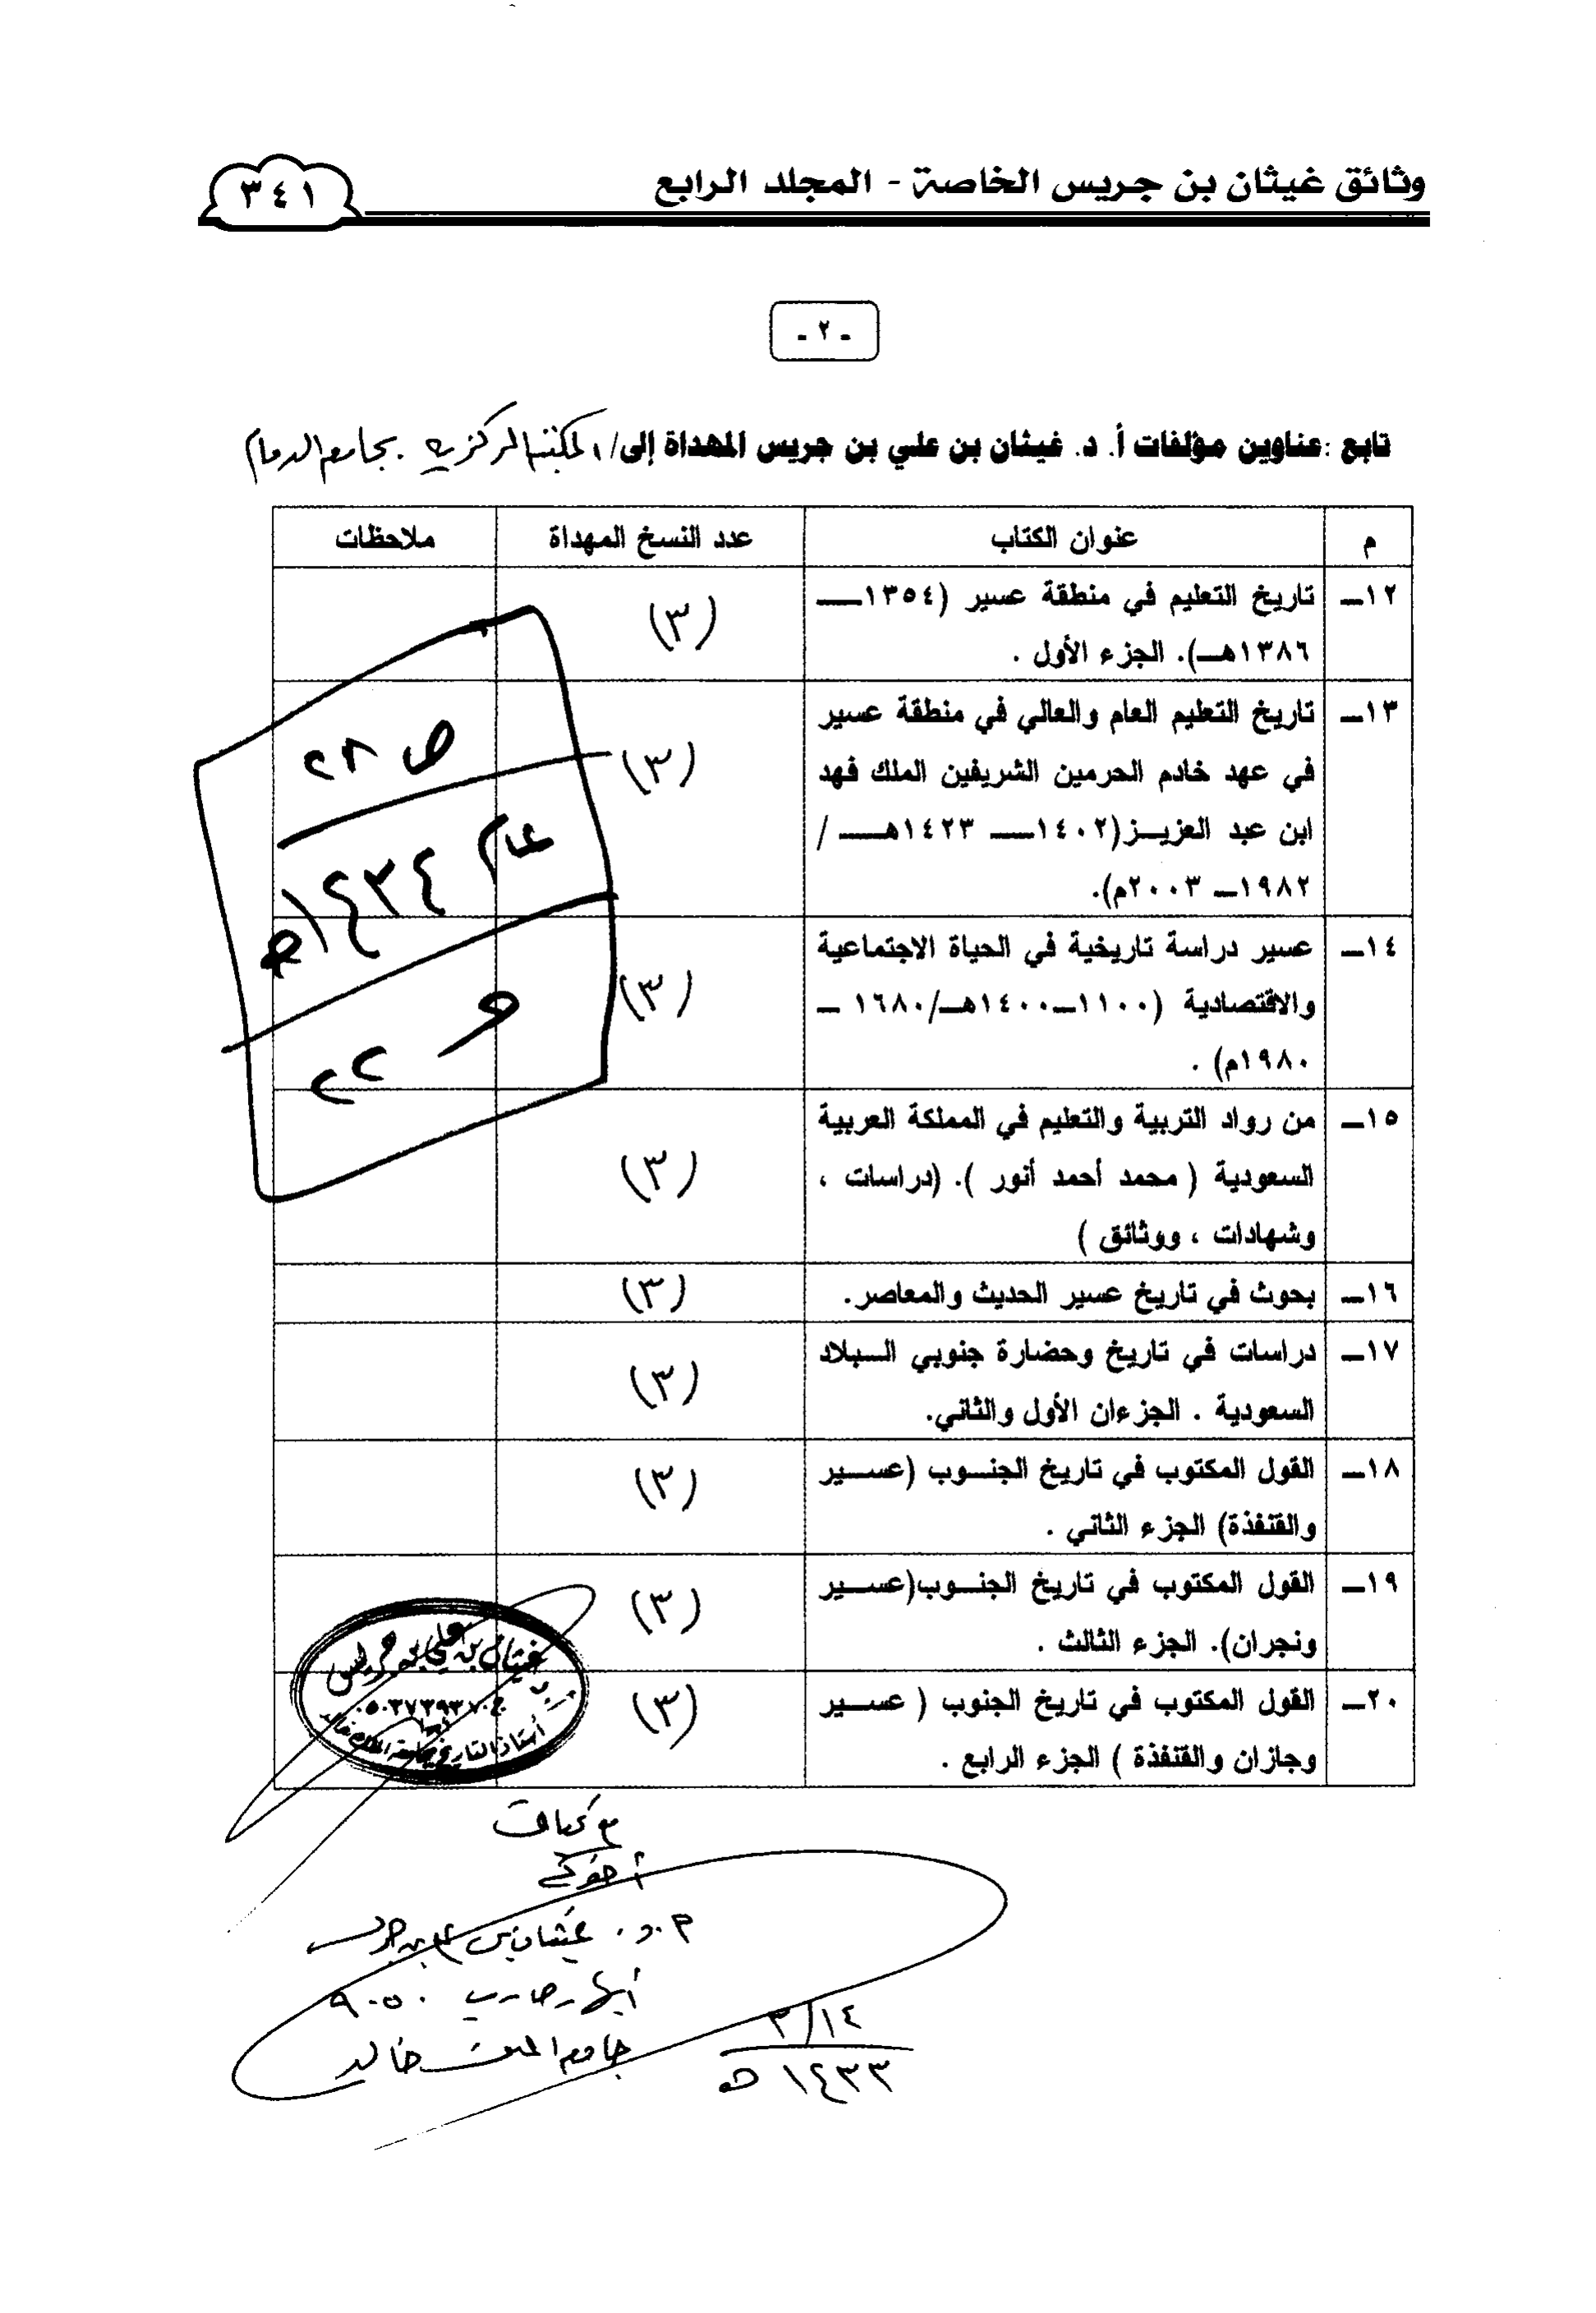 وثائق غيثان بن جريس الخاصة - المجلد الرابع
٣٤١
- ٢ -
تابع :عناوين مؤلفات أ. د. غيثان بن علي بن جريس المهداة إلى/ المكتبة المركزية بجامعة الدمام
م عنوان الكتاب عدد النسخ المهداة ملاحظات
١٢ــ تاريخ التعليم في منطقة عسير (١٣٥٤ــ (٣)
١٣٨٦هــ). الجزء الأول .
١٣ــ تاريخ التعليم العام والعالي في منطقة عسير
في عهد خادم الحرمين الشريفين الملك فهد (٣)
ابن عبد العزيــز(١٤٠٢ــ ١٤٢٣هــ /
١٩٨٢ــ ٢٠٠٣م).
ص ٢٨
عام ١٤٣٤هـ
و ٢٢
١٤ــ عسير دراسة تاريخية في الحياة الاجتماعية
والاقتصادية (١١٠٠ــ١٤٠٠هــ/١٦٨٠ ــ (٣)
١٩٨٠م) .
١٥ــ من رواد التربية والتعليم في المملكة العربية
السعودية ( محمد أحمد أنور ). (دراسات ، (٣)
وشهادات ، ووثائق )
١٦ــ بحوث في تاريخ عسير الحديث والمعاصر. (٣)
١٧ــ دراسات في تاريخ وحضارة جنوبي الــبلاد (٣)
السعودية . الجزءان الأول والثاني.
١٨ــ القول المكتوب في تاريخ الجنــوب (عســير (٣)
والقنفذة) الجزء الثاني .
١٩ــ القول المكتوب في تاريخ الجنــوب(عســير (٣)
ونجران). الجزء الثالث .
٢٠ــ القول المكتوب في تاريخ الجنوب ( عســير (٣)
وجازان والقنفذة ) الجزء الرابع .
غيثان بن علي بن جريس
أستاذ التاريخ بجامعة الملك خالد
مع تحيات
أخوكم
أ.د. غيثان بن علي بن جريس
أبها ـ ص.ب ٩٠٥٠
جامعة الملك خالد
٣/١٤
١٤٣٣هـ